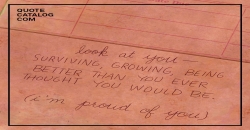 QUOTE
CATALOG
.COM
look at you—
SURVIVING, GROWING, BEING
BETTER THAN YOU EVER
THOUGHT YOU WOULD BE.
(i'm proud of you)